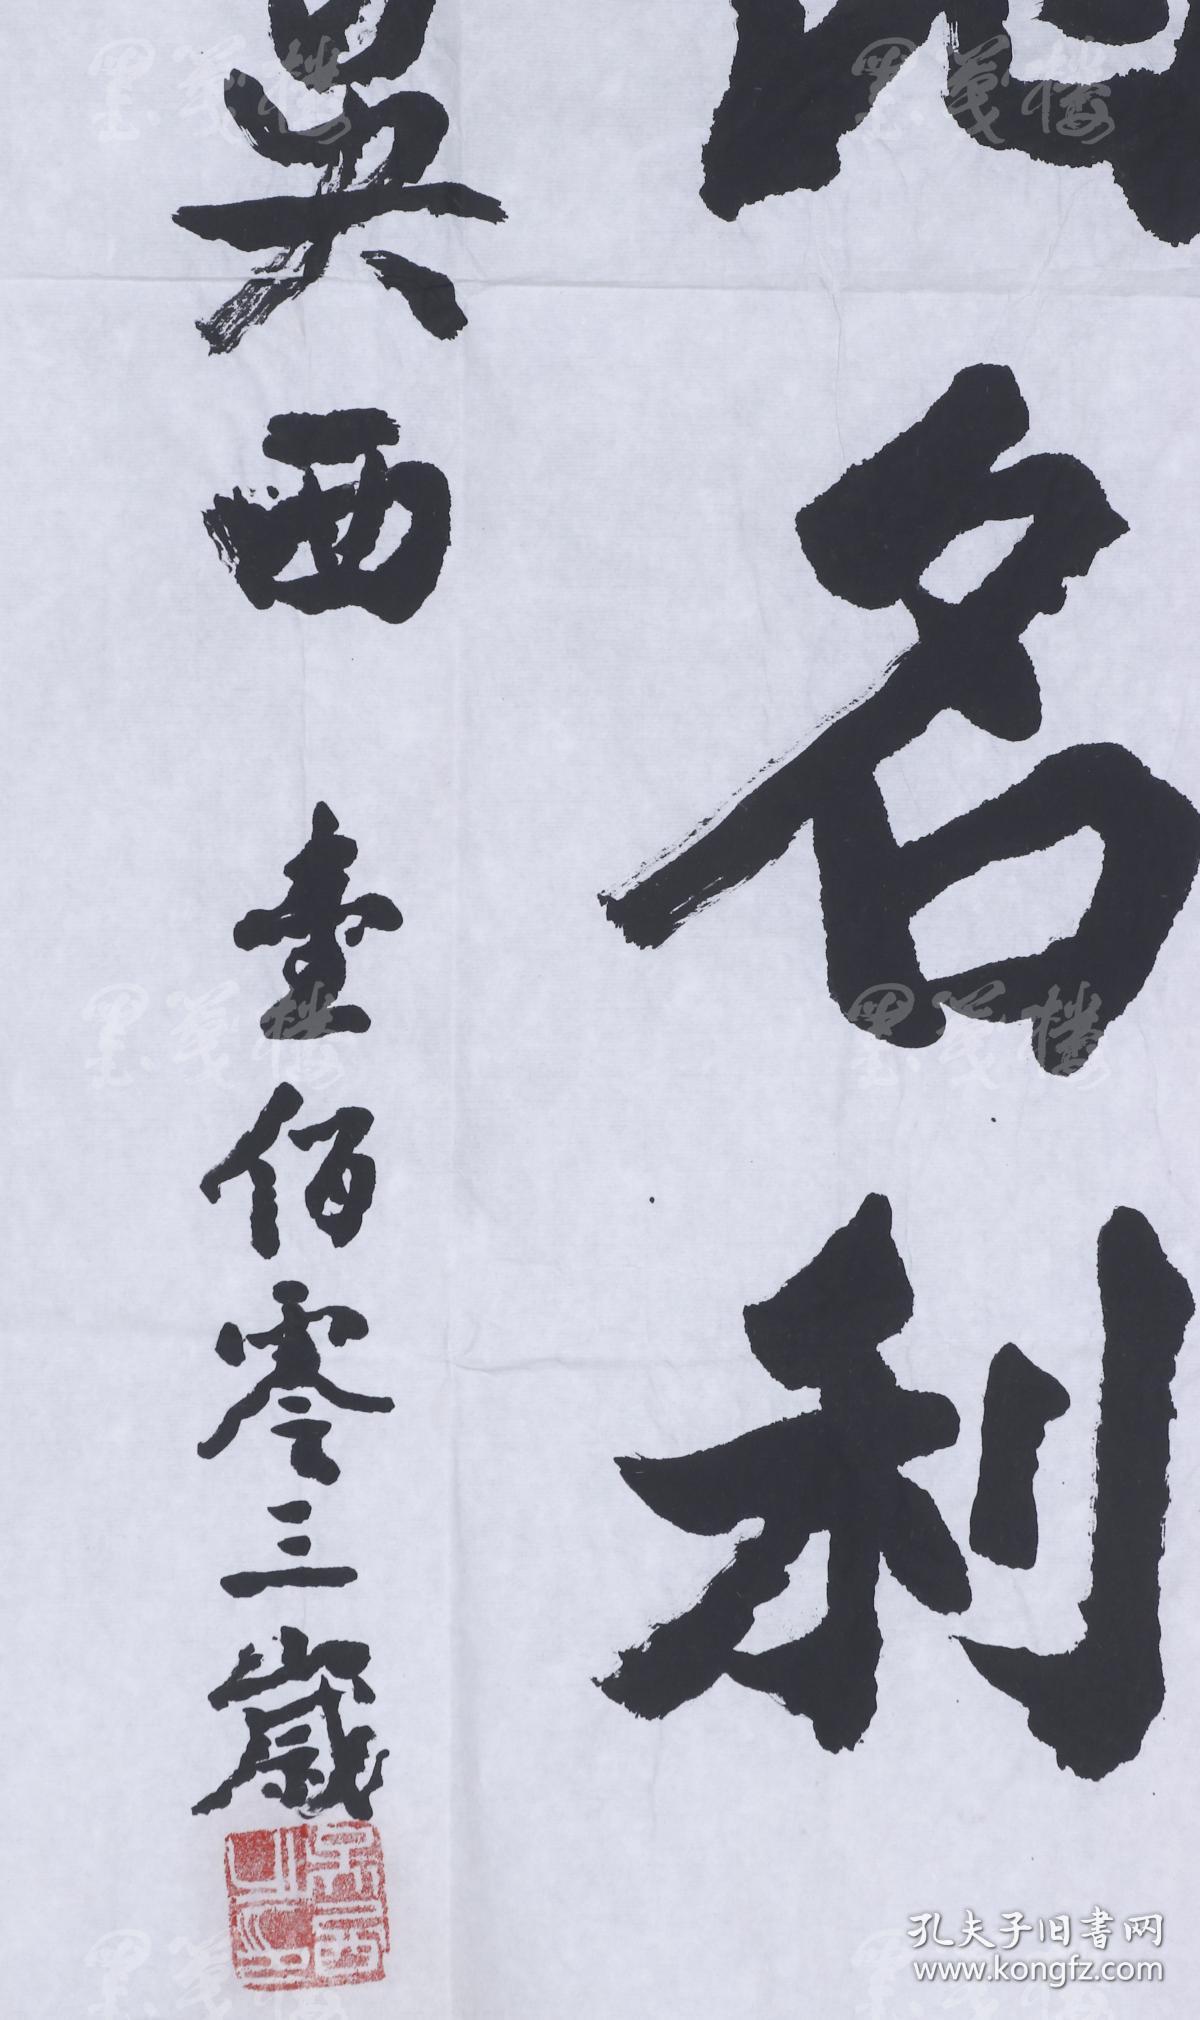 名利
吴西 壹佰零三歲
吴西之印
墨笺楼
墨笺楼
墨笺楼
墨笺楼
孔夫子旧书网
www.kongfz.com